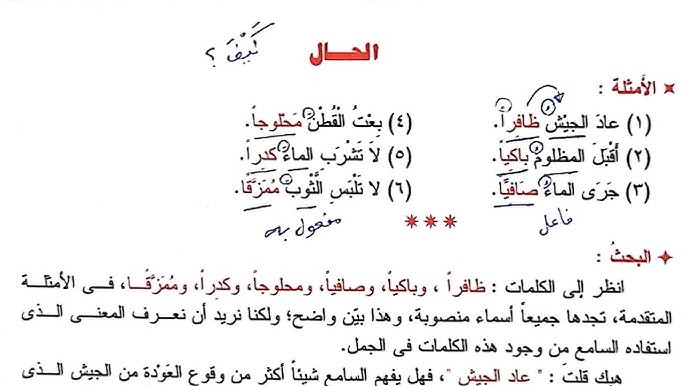 الحال كَيْفَ ؟
الأمثلة :
(١) عادَ الجيْشُ ظافِراً. (٤) بِعْتُ الْقُطْنَ مَحْلوجاً.
(٢) أَقْبَلَ المظلومُ باكِياً. (٥) لاَ تَشْرَبِ الماءَ كدِراً.
(٣) جَرَى الماءُ صافِيًا. (٦) لا تَلْبَسِ الثَّوبَ مُمَزَّقًا.
فاعل *** مفعول به
البحثُ :
انظر إلى الكلمات : ظافراً ، وباكياً، وصافياً، ومحلوجاً، وكدِراً، ومُمَزَّقًا، فى الأمثلة
المتقدمة، تجدها جميعاً أسماء منصوبة، وهذا بيّن واضح؛ ولكنا نريد أن نعرف المعنى الذى
استفاده السامع من وجود هذه الكلمات فى الجمل.
هبك قلتَ : " عاد الجيش "، فهل يفهم السامع شيئاً أكثر من وقوع العَوْدة من الجيش الذى